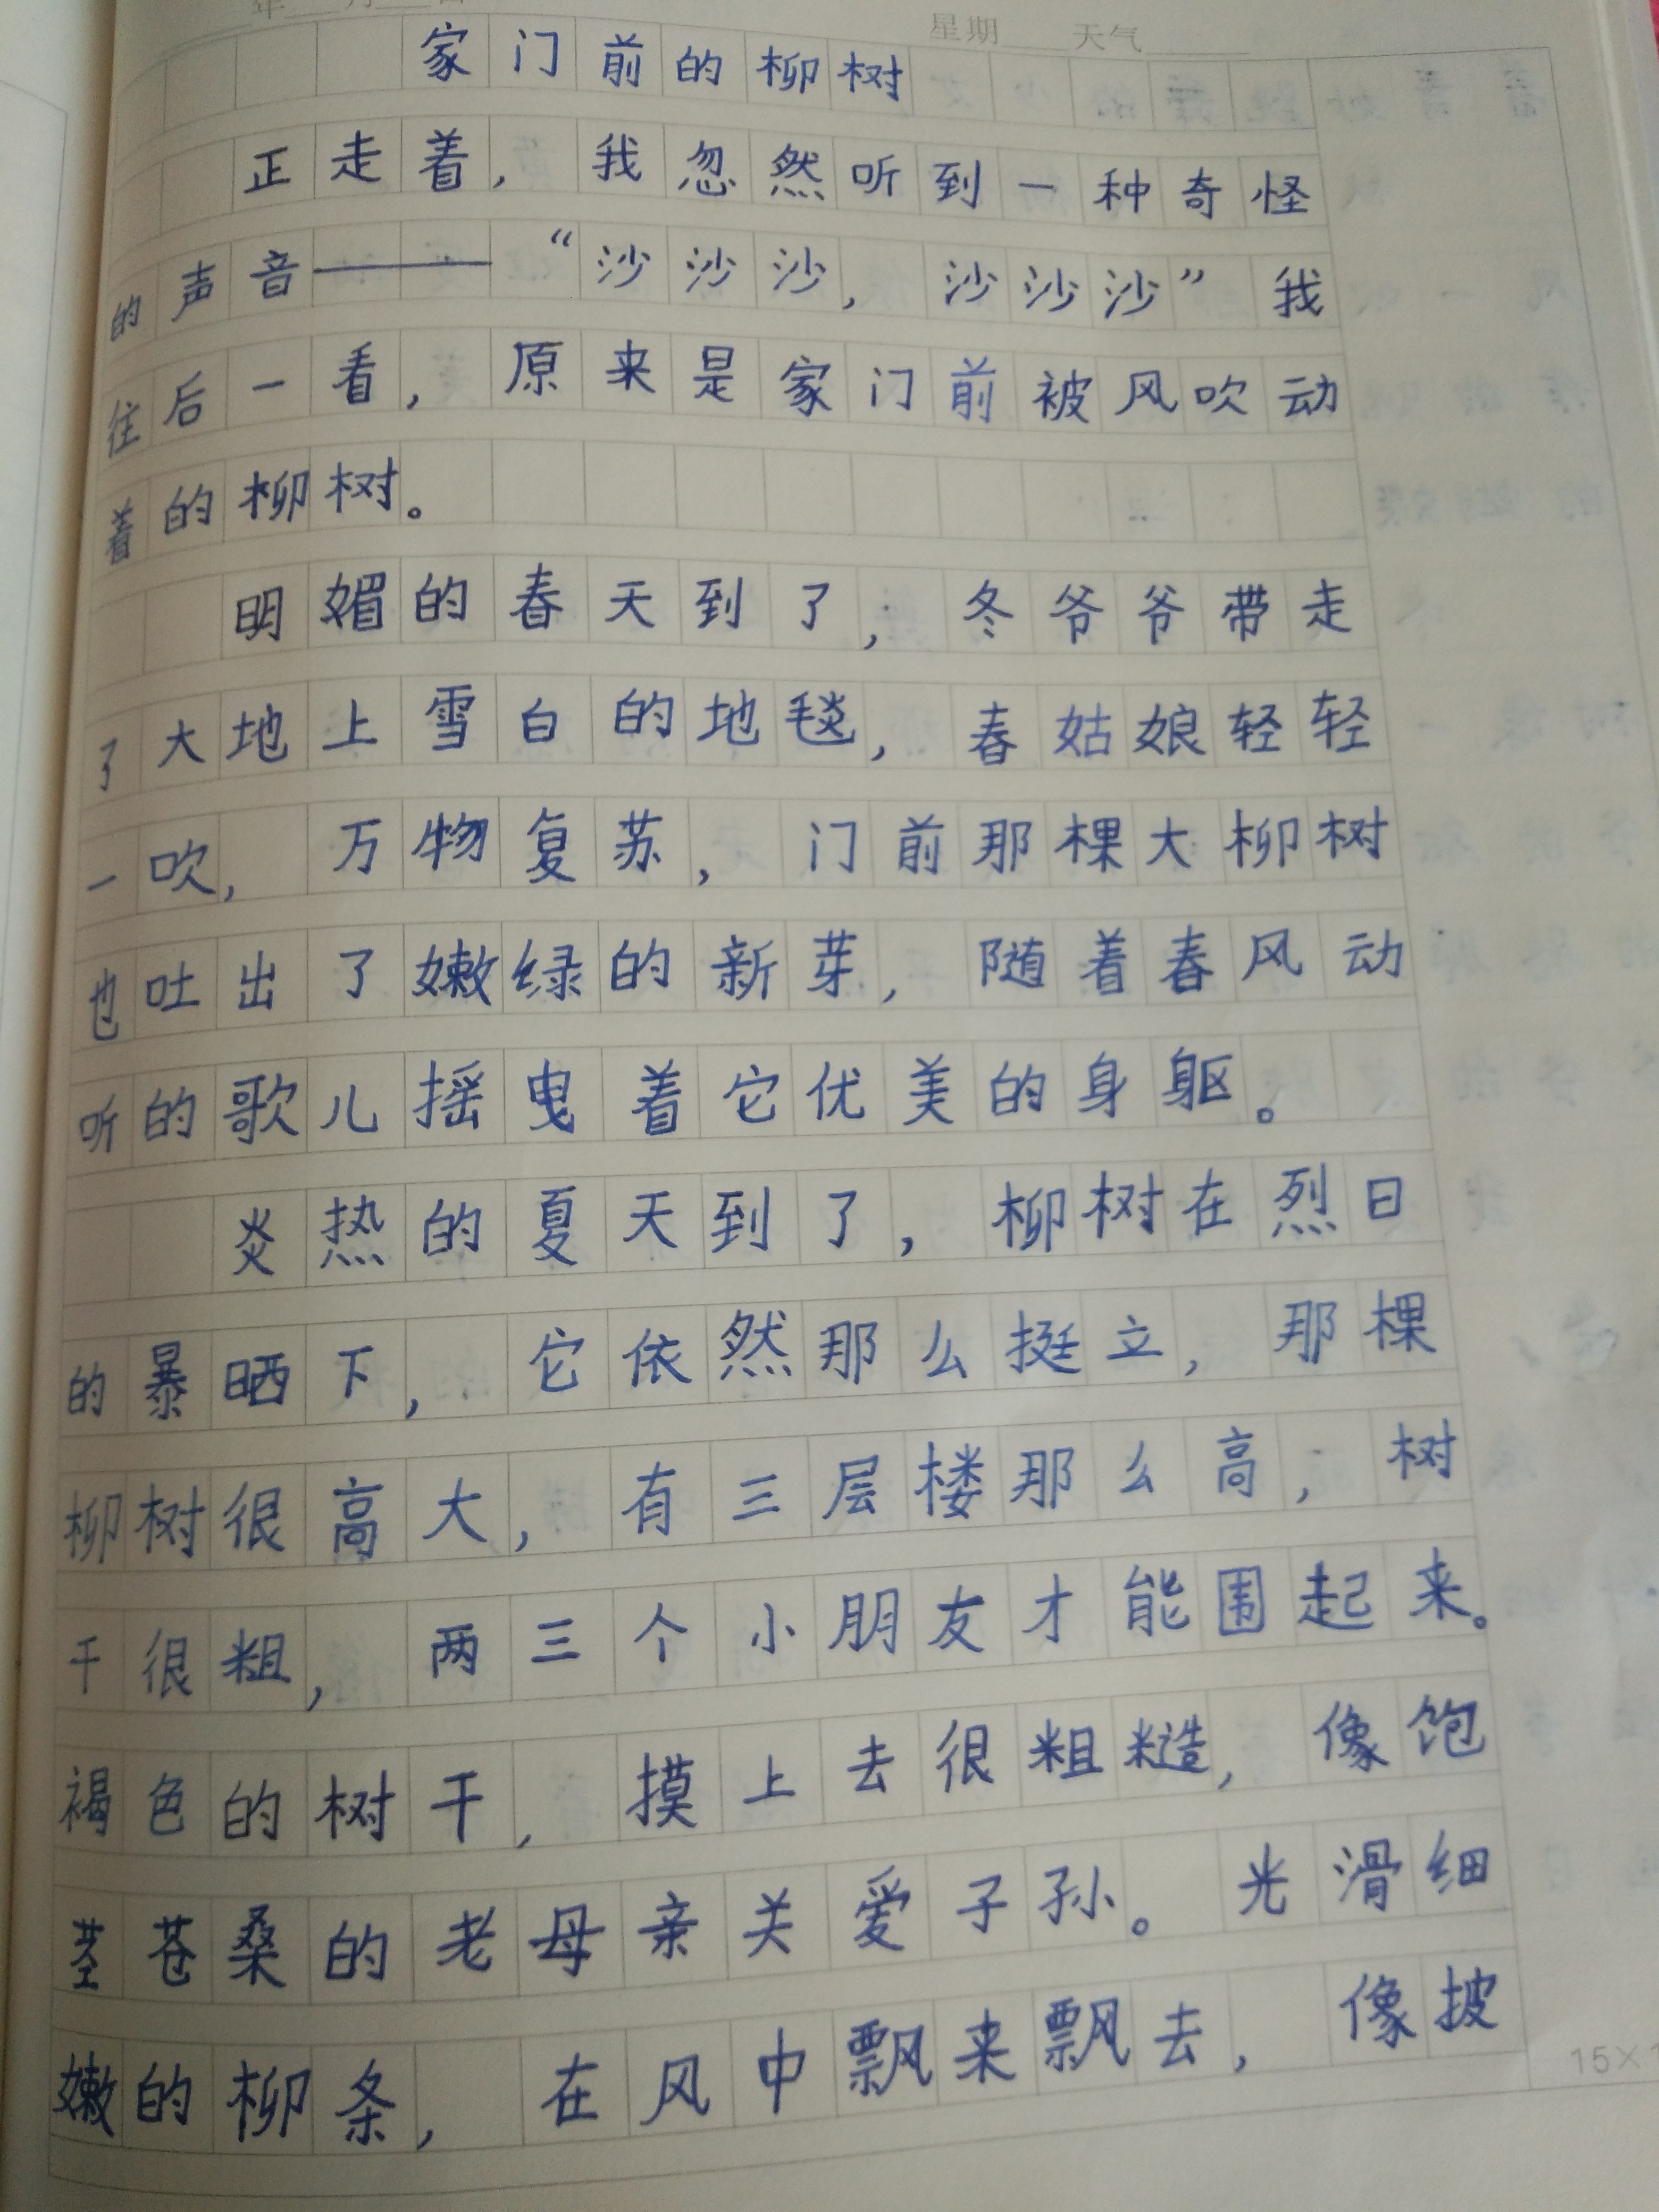 年 月 日 星期 天气
家门前的柳树
正走着，我忽然听到一种奇怪
的声音——“沙沙沙，沙沙沙”我
往后一看，原来是家门前被风吹动
着的柳树。
明媚的春天到了，冬爷爷带走
了大地上雪白的地毯，春姑娘轻轻
一吹，万物复苏，门前那棵大柳树
也吐出了嫩绿的新芽，随着春风动
听的歌儿摇曳着它优美的身躯。
炎热的夏天到了，柳树在烈日
的暴晒下，它依然那么挺立，那棵
柳树很高大，有三层楼那么高，树
干很粗，两三个小朋友才能围起来。
褐色的树干，摸上去很粗糙，像饱
苍桑的老母亲关爱子孙。光滑细
嫩的柳条，在风中飘来飘去，像披
15×